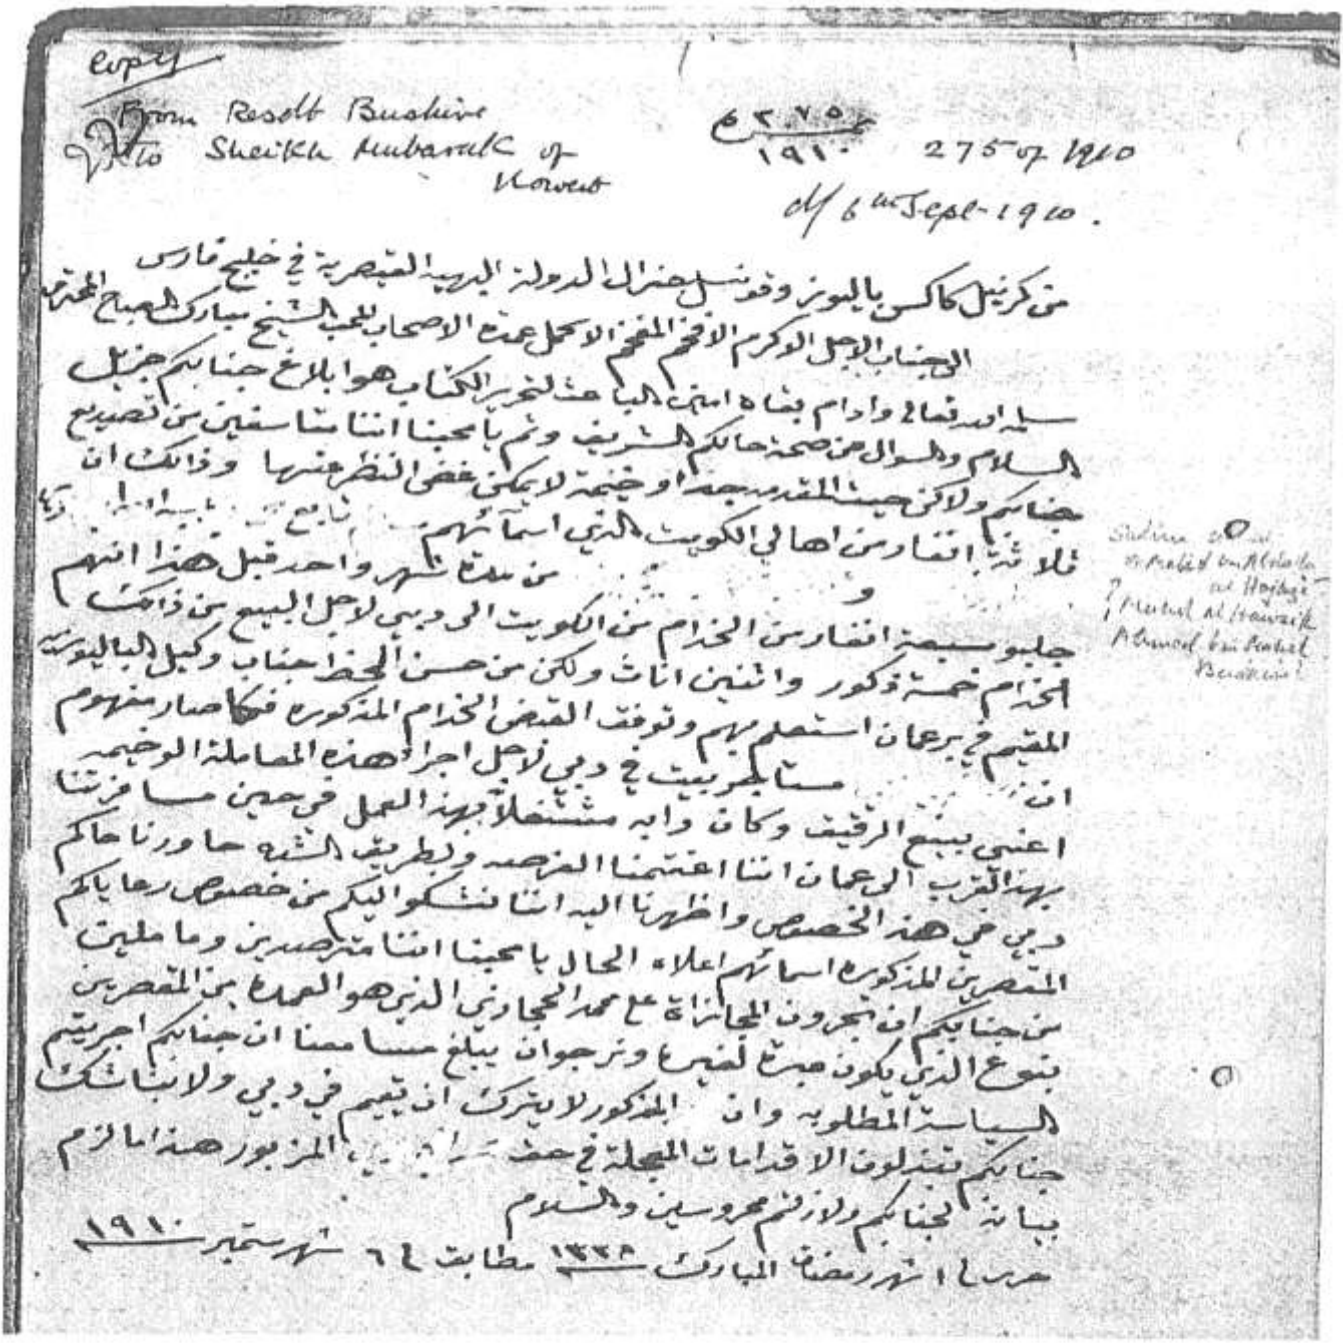 Copy
From Resdt Bushire
To Sheikh Mubarak of
Koweit
نمرة ٢٧٥
١٩١٠
275 of 1910
d/ 6th Sept. 1910.
من كرنيل كاكس باليوز وقونسل جنرال الدولة البهيه القيصرية في خليج فارس
الى جناب الاجل الاكرم الافخم المفخم الاكمل عمدة الاصحاب المحب الشيخ مبارك الصباح المحترم
سلمه الله تعالى وادام بقاه امين الباعث لتحرير الكتاب هو ابلاغ جنابكم جزيل
السلام والسوال عن صحة حالكم الشريف وثم يا محبنا اننا متاسفين من تصديع
جنابكم ولاكن حيث المقدمه جدا وخيمة لا يمكن غض النظر عنها وذالك ان
ثلاثة انفار من اهالي الكويت الذي اسمآئهم
و من مدة شهر واحد قبل هذا انهم
جلبو سبعة انفار من الخدام من الكويت الى دبي لاجل البيع من ذالك
الخدام خمسة ذكور واثنين اناث ولكن من حسن الحظ جناب وكيل الباليوزيه
المقيم في بر عمان استعلم بهم وتوفق القبض الخدام المذكوره فكما صار مفهوم
ان مستاجر بيت في دبي لاجل اجراء هذه المعاملة الوخيمه
اعني ببيع الرقيق وكان دابه مشتغلاً بهذا العمل في حين مسافرتنا
بهذا القرب الى عمان اننا اغتنمنا الفرصه وبطريق الشفه حاورنا حاكم
دبي في هذ الخصوص واظهرنا اليه اننا نشكو اليكم من خصوص رعاياكم
المقصرين المذكوره اسمائهم اعلاه الحال يا محبنا اننا مترصدين وماملين
من جنابكم ان تجرون المجازاة على محمد الحجاوني الذي هو العمدة من المقصرين
بنوع الذي يكون عبرة لغيره ونرجوان يبلغ مسامعنا ان جنابكم اجريتم
السياسة المطلوبه وان المذكور لا يترك ان يقيم في دبي ولا بنا شك
جنابكم تبذلون الاقدامات المعجلة في حق المزبور هذا ما لزم
بيانه لجنابكم ولازلتم محروسين والسلام
حرر في ١ شهر رمضان المبارك ١٣٢٨ مطابق في ٦ شهر ستمبر ١٩١٠